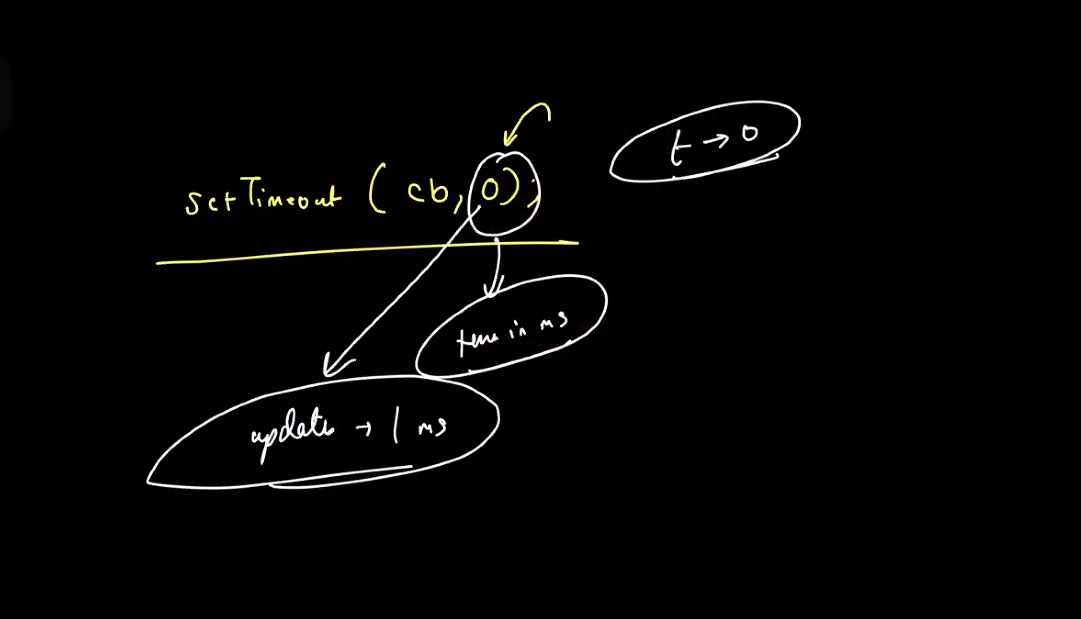 t → 0
setTimeout ( cb, 0);
time in ms
update → 1 ms